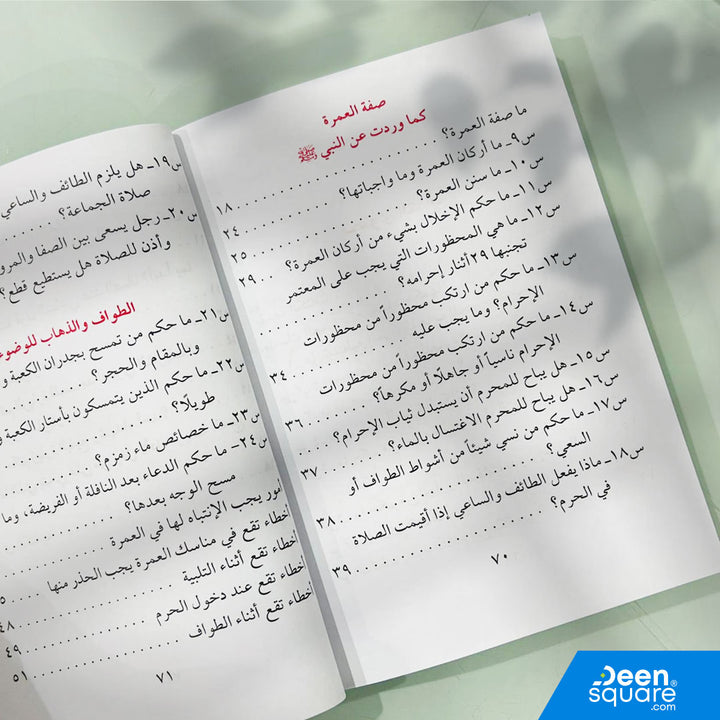 صفة العمرة
كما وردت عن النبي ﷺ
ما صفة العمرة؟ ........ ١٨
س٩ـ ما أركان العمرة وما واجباتها؟ ........ ٢٤
س١٠ـ ما سنن العمرة؟ ........ ٢٥
س١١ـ ما حكم الإخلال بشيء من أركان العمرة؟ .. ٢٩
س١٢ـ ما هي المحظورات التي يجب على المعتمر
تجنبها ٢٩أثنار إحرامه؟ ........
س١٣ـ ما حكم من ارتكب محظوراً من محظورات
الإحرام؟ وما يجب عليه ........ ٣٤
س١٤ـ ما حكم من ارتكب محظوراً من محظورات
الإحرام ناسياً أو جاهلاً أو مكرهاً؟ ........ ٣٦
س١٥ـ هل يباح للمحرم أن يستبدل ثياب الإحرام؟ ...
س١٦ـ هل يباح للمحرم الاغتسال بالماء؟ ........ ٣٧
س١٧ـ ما حكم من نسي شيئاً من أشواط الطواف أو
السعي؟ ........ ٣٨
س١٨ـ ماذا يفعل الطائف والساعي إذا أقيمت الصلاة
في الحرم؟ ........ ٣٩
٧٠
س١٩ـ هل يلزم الطائف والساعي
صلاة الجماعة؟ ........
س٢٠ـ رجل يسعى بين الصفا والمرو
وأذن للصلاة هل يستطيع قطع؟
الطواف والذهاب للوضوء
س٢١ـ ما حكم من تمسح بجدران الكعبة و
وبالمقام والحجر؟ ........
س٢٢ـ ما حكم الذين يتمسكون بأستار الكعبة و
طويلاً؟ ........
س٢٣ـ ما خصائص ماء زمزم؟ ........
س٢٤ـ ما حكم الدعاء بعد النافلة أو الفريضة، وما
مسح الوجه بعدها؟ ........
أمور يجب الإنتباه لها في العمرة ........
أخطاء تقع في مناسك العمرة يجب الحذر منها ...
أخطاء تقع أثناء التلبية ........ ٤٨
أخطاء تقع عند دخول الحرم ........ ٤٩
أخطاء تقع أثناء الطواف ........ ٥١
٧١
Deen
square®
.com